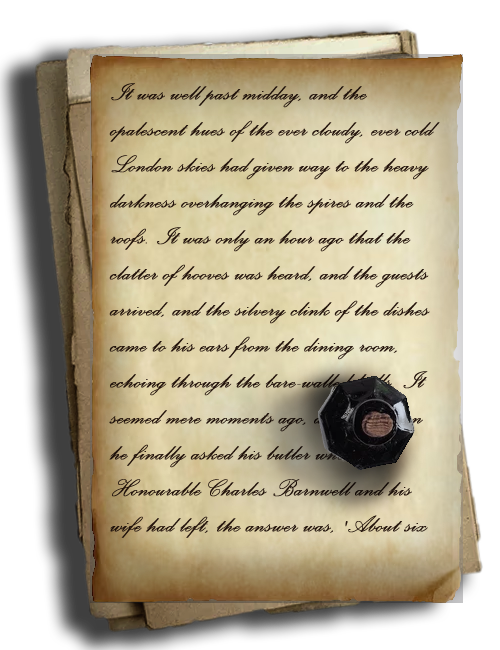 It was well past midday, and the
opalescent hues of the ever cloudy, ever cold
London skies had given way to the heavy
darkness overhanging the spires and the
roofs. It was only an hour ago that the
clatter of hooves was heard, and the guests
arrived, and the silvery clink of the dishes
came to his ears from the dining room,
echoing through the bare-walled It
seemed mere moments ago,
he finally asked his butler
Honourable Charles Barnwell and his
wife had left, the answer was, 'About six